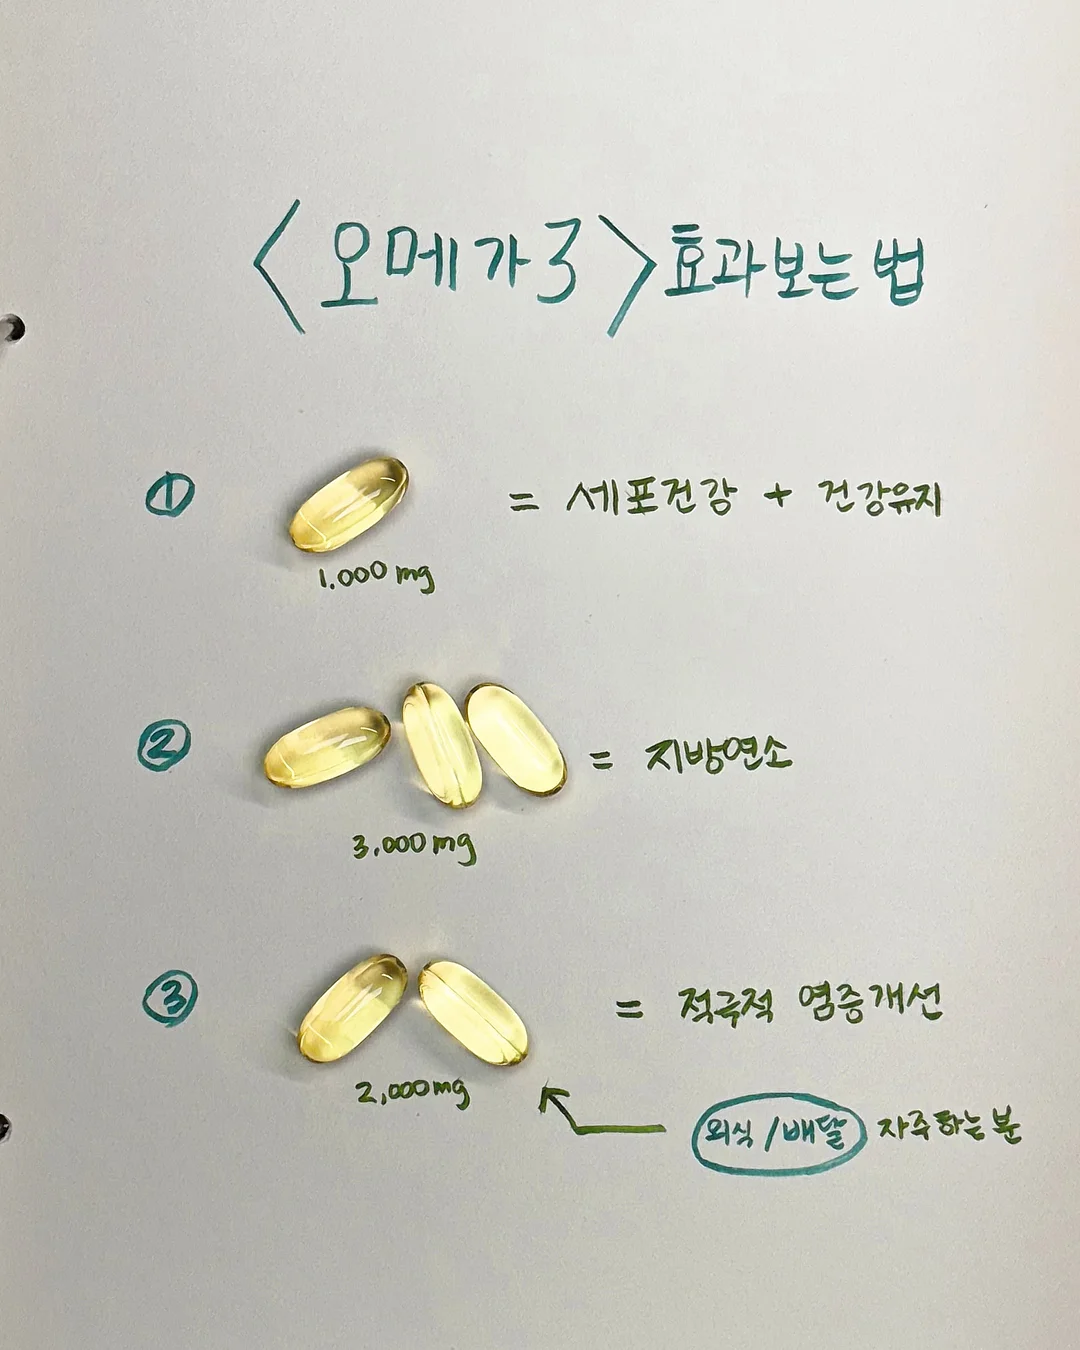 <오메가3> 효과보는 법
① = 세포건강 + 건강유지
1.000mg
② = 지방연소
3.000mg
③ = 적극적 염증개선
2,000mg
외식/배달 자주하는 분